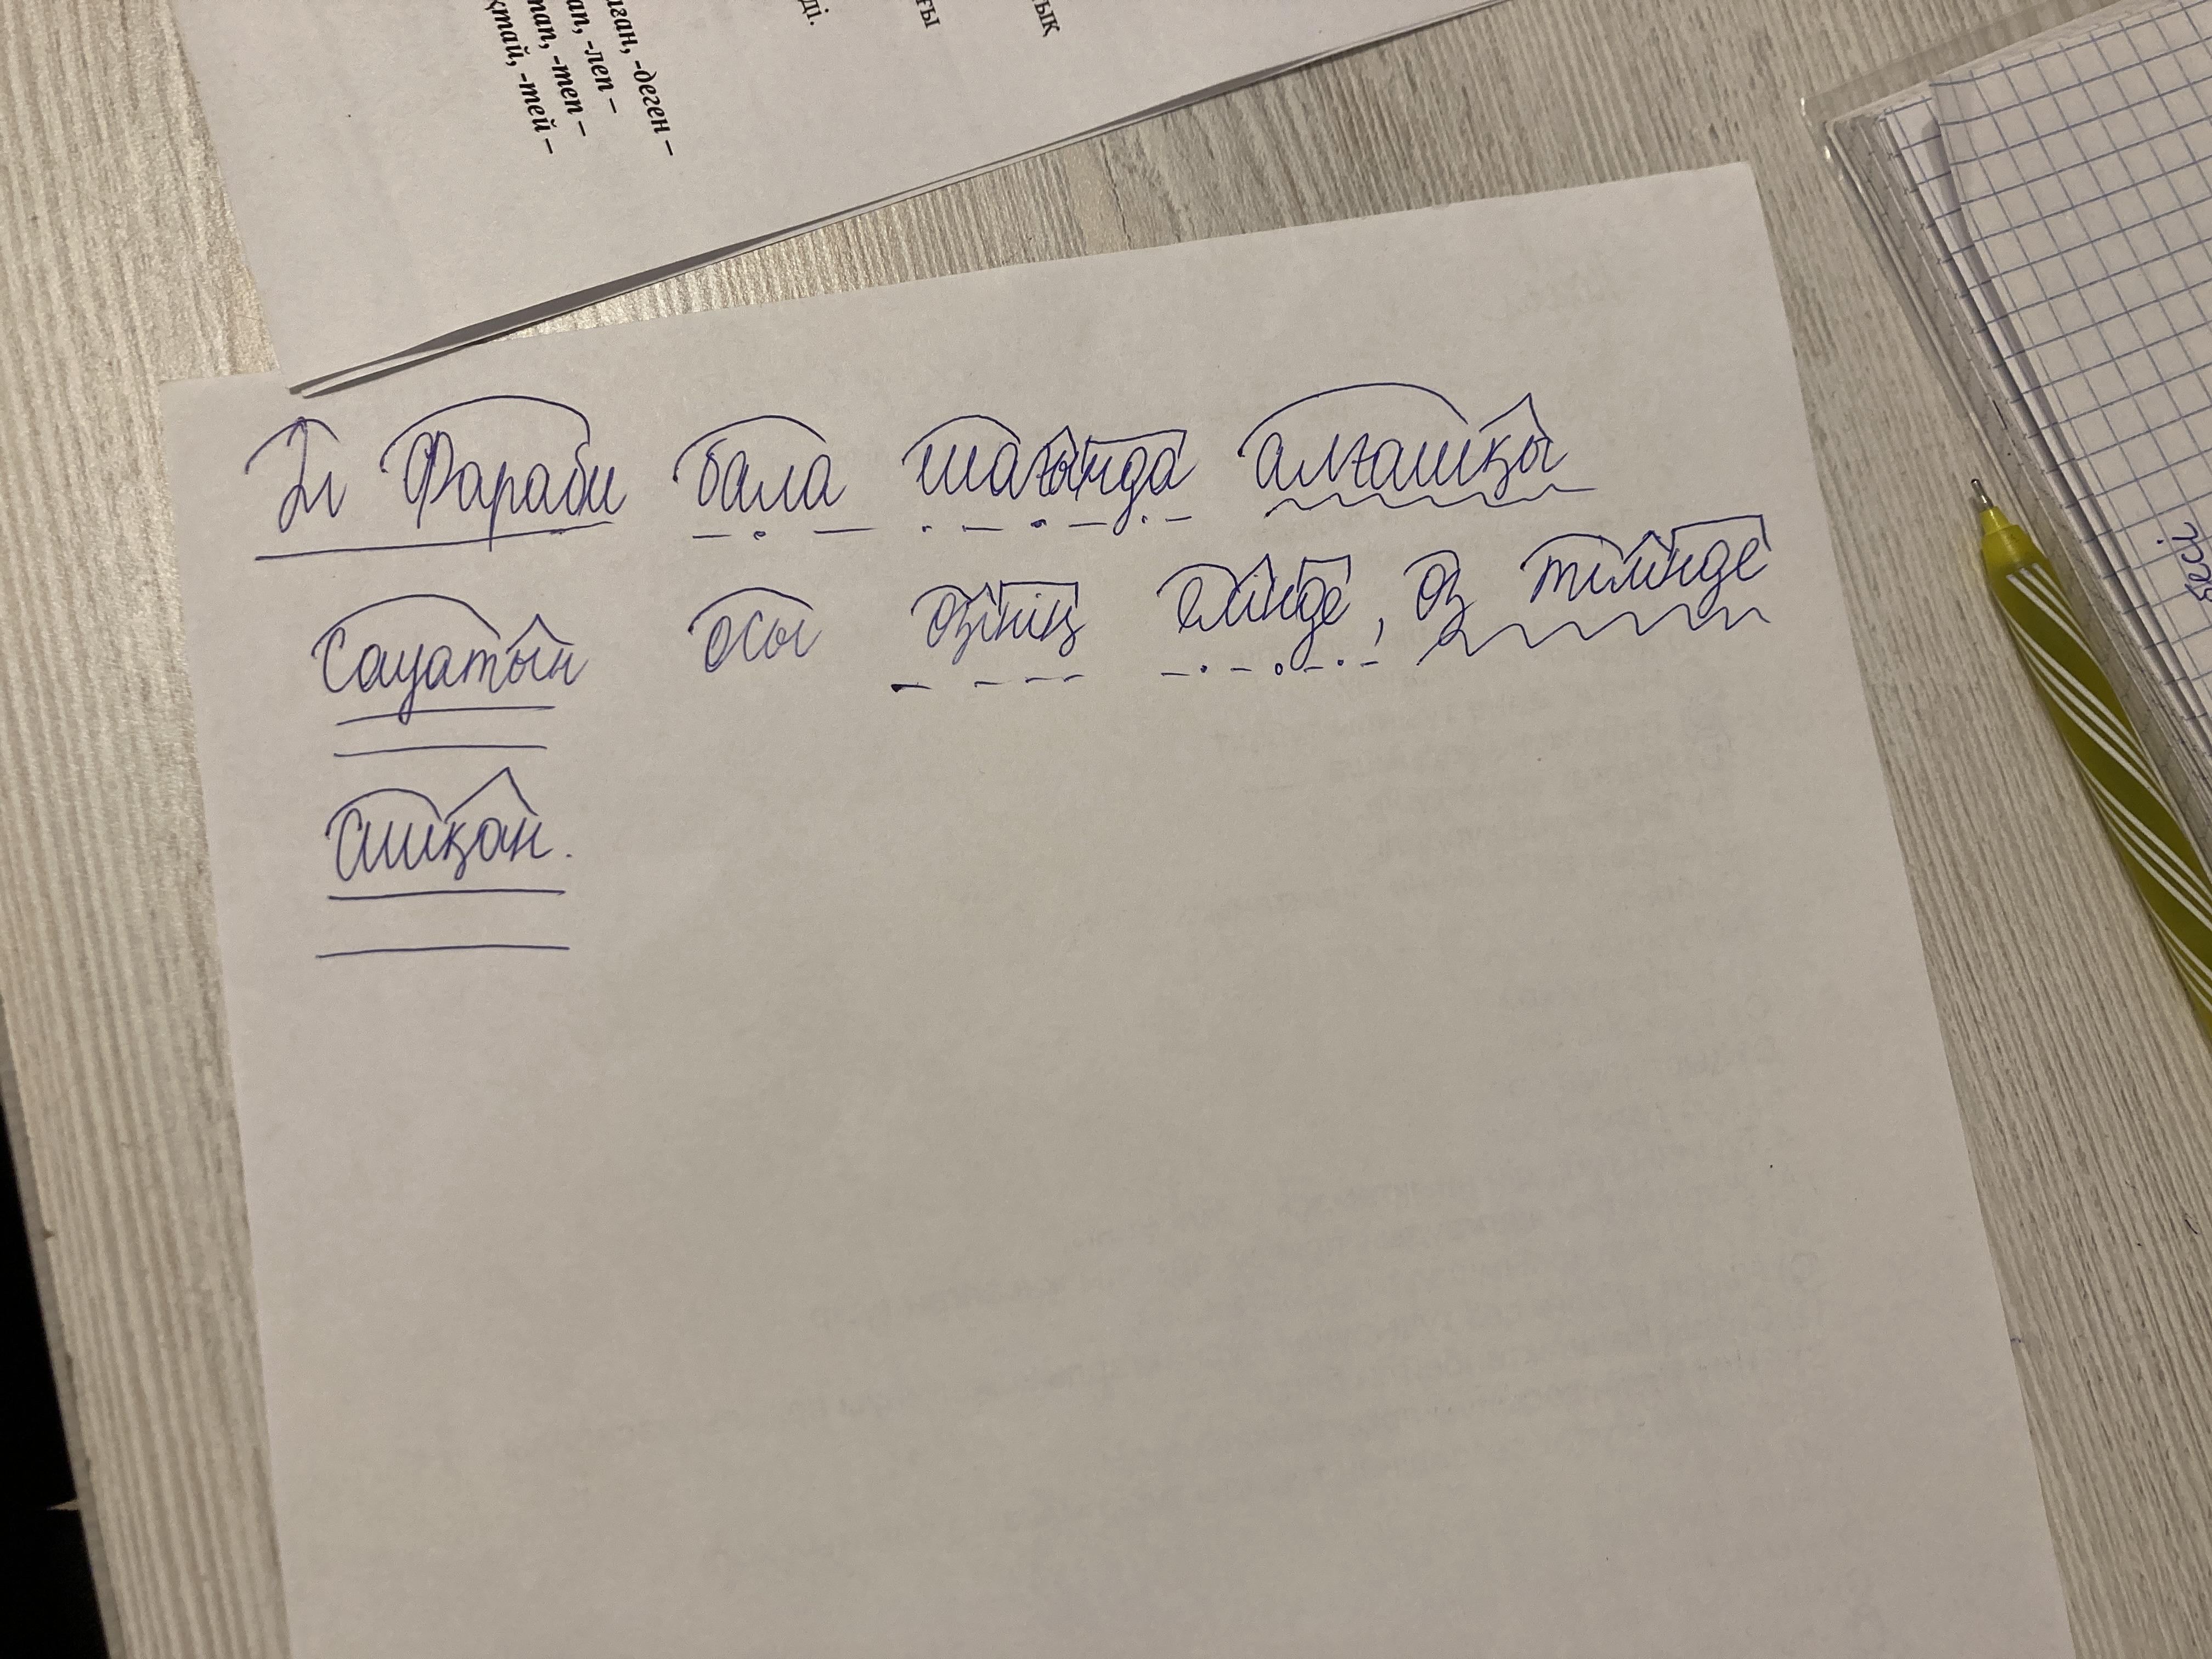 -ған, -деген –
-ап, -леп –
-тап, -теп –
-қтай, -тей –
ді.
ғы
ық
Әл Фараби бала шағында алғашқы
сауатын осы өзінің елінде, өз тілінде
ашқан.